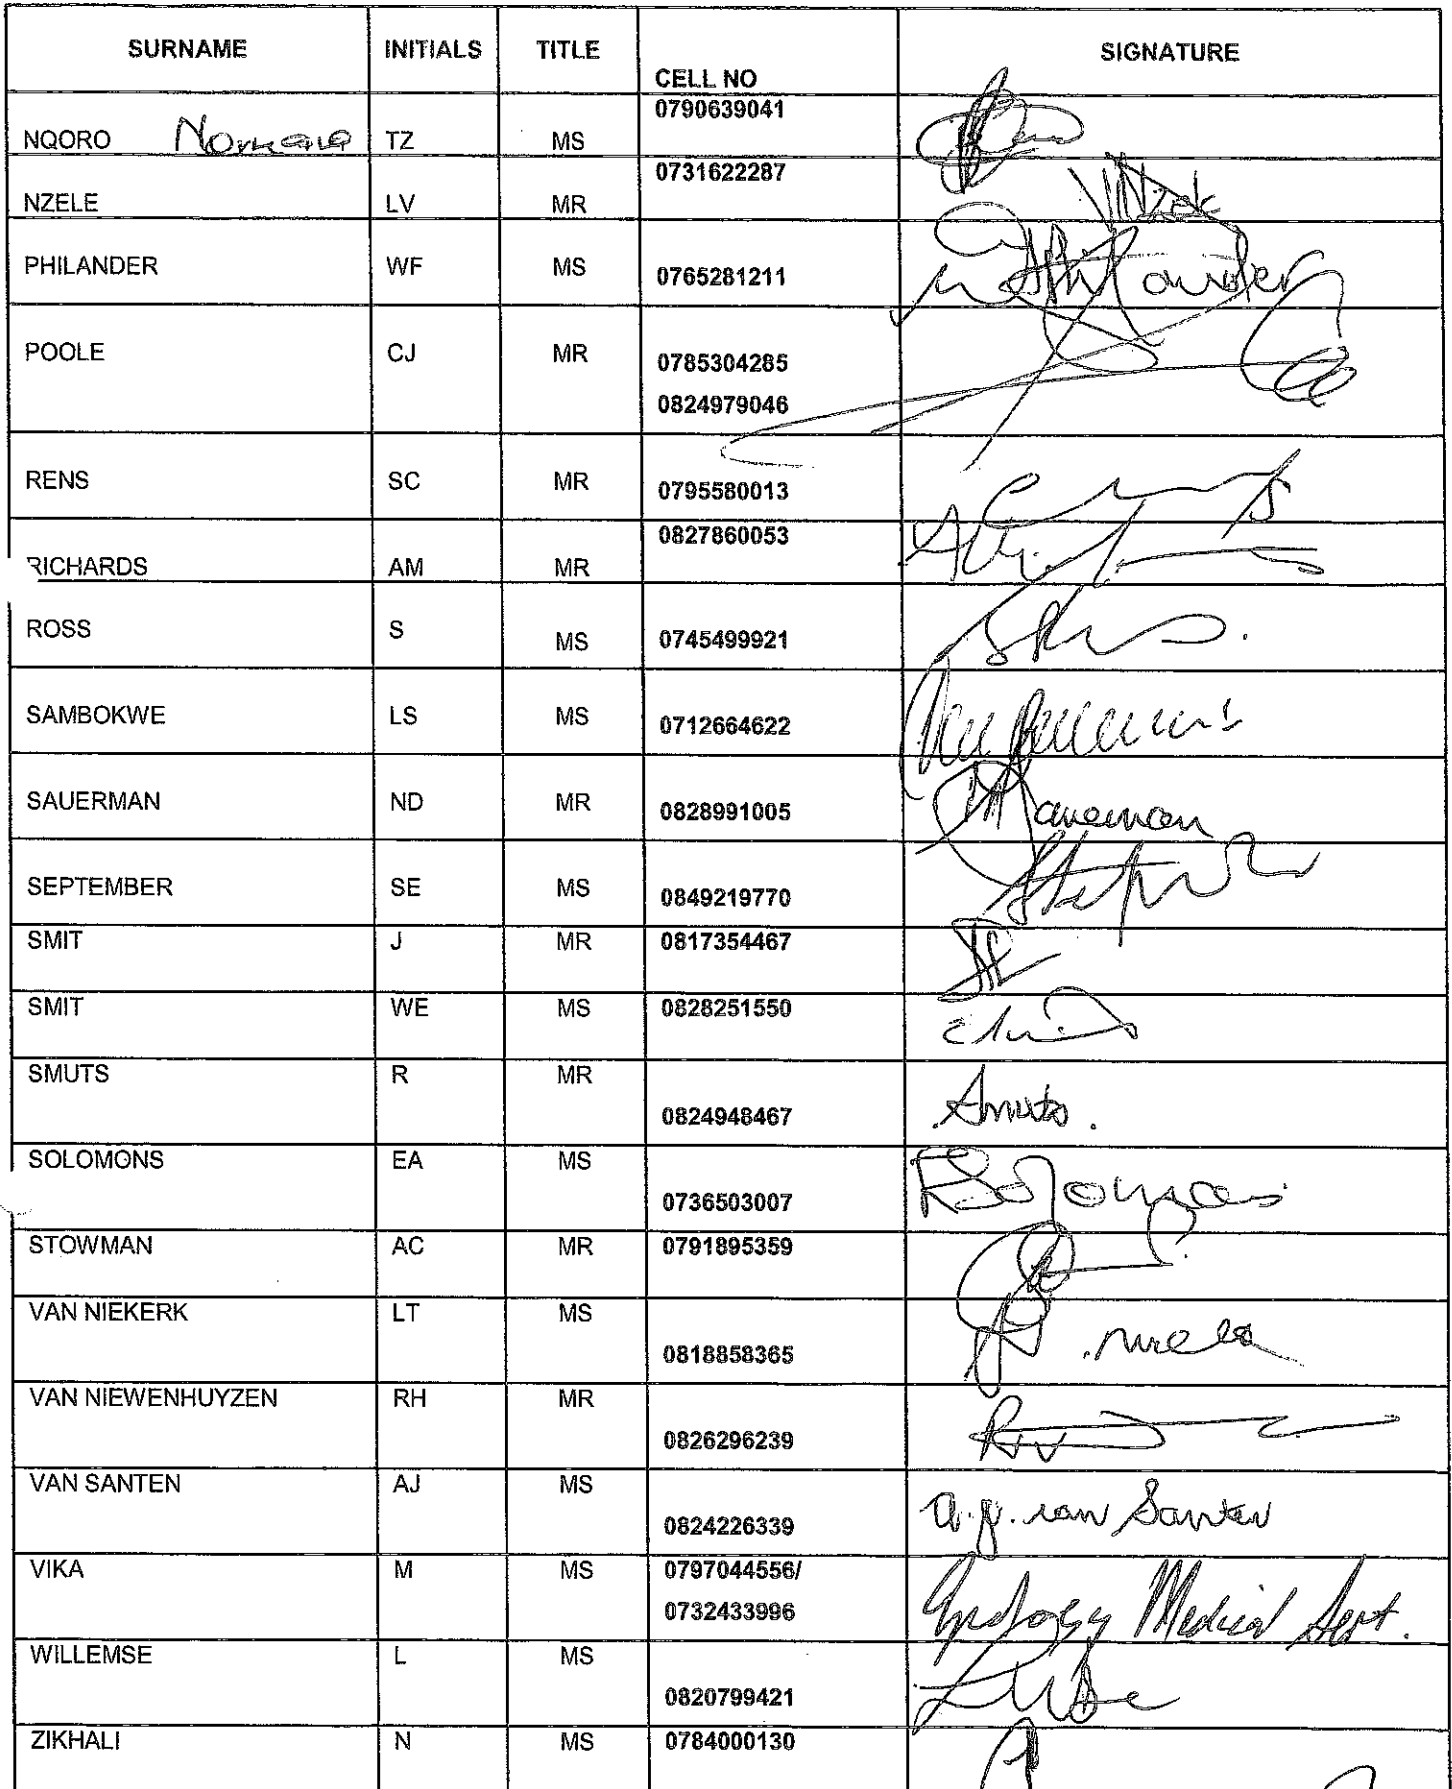 SURNAME INITIALS TITLE CELL NO SIGNATURE
NQORO TZ MS 0790639041
NZELE LV MR 0731622287
PHILANDER WF MS 0765281211
POOLE CJ MR 0785304285
0824979046
RENS SC MR 0795580013
RICHARDS AM MR 0827860053
ROSS S MS 0745499921
SAMBOKWE LS MS 0712664622
SAUERMAN ND MR 0828991005
SEPTEMBER SE MS 0849219770
SMIT J MR 0817354467
SMIT WE MS 0828251550
SMUTS R MR 0824948467 Smuts.
SOLOMONS EA MS 0736503007
STOWMAN AC MR 0791895359
VAN NIEKERK LT MS 0818858365
VAN NIEWENHUYZEN RH MR 0826296239
VAN SANTEN AJ MS 0824226339 a.j. van Santen
VIKA M MS 0797044556/ Apology Medical Appt.
0732433996
WILLEMSE L MS 0820799421
ZIKHALI N MS 0784000130